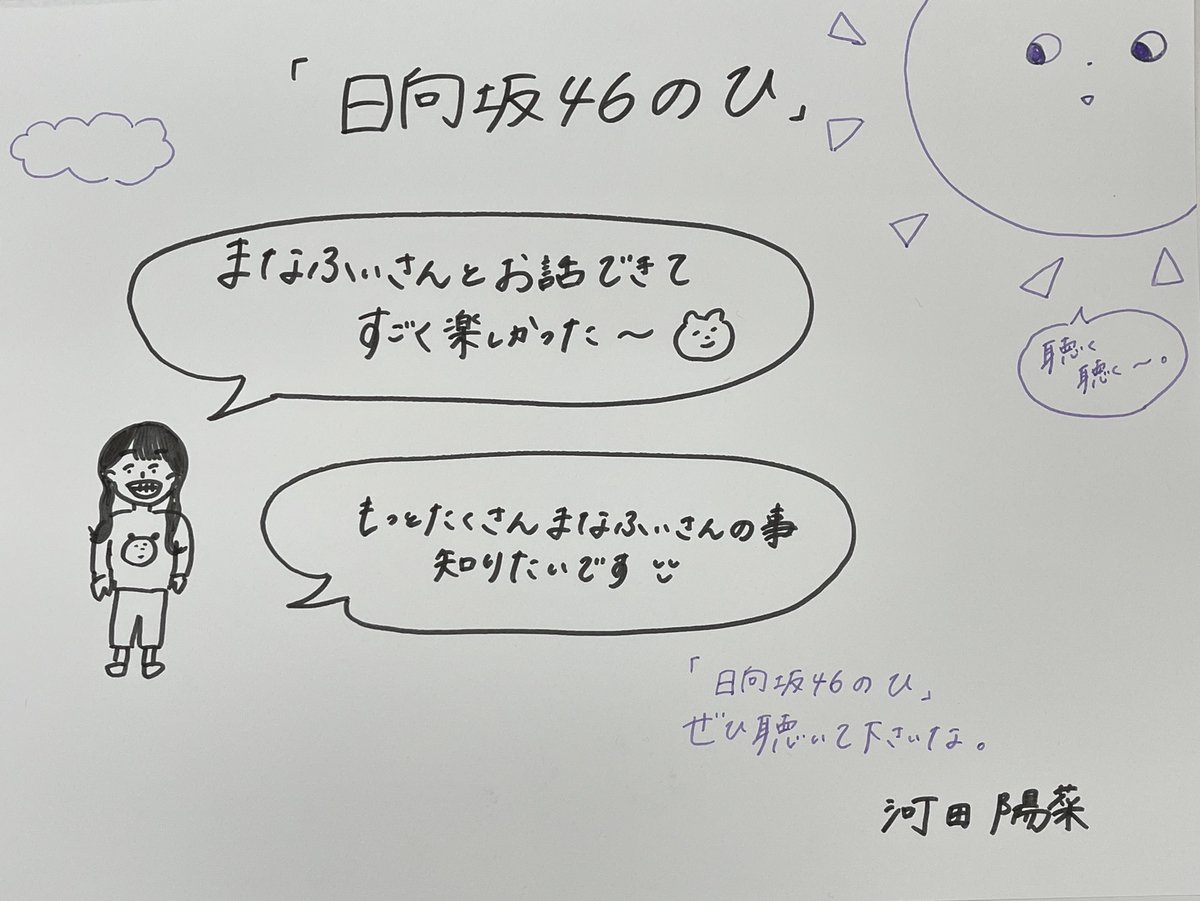 「日向坂46のひ」
まなふぃさんとお話できて
すごく楽しかった〜
聴く
聴く〜。
もっとたくさんまなふぃさんの事
知りたいです
「日向坂46のひ」
ぜひ聴いて下さいな。
河田陽菜